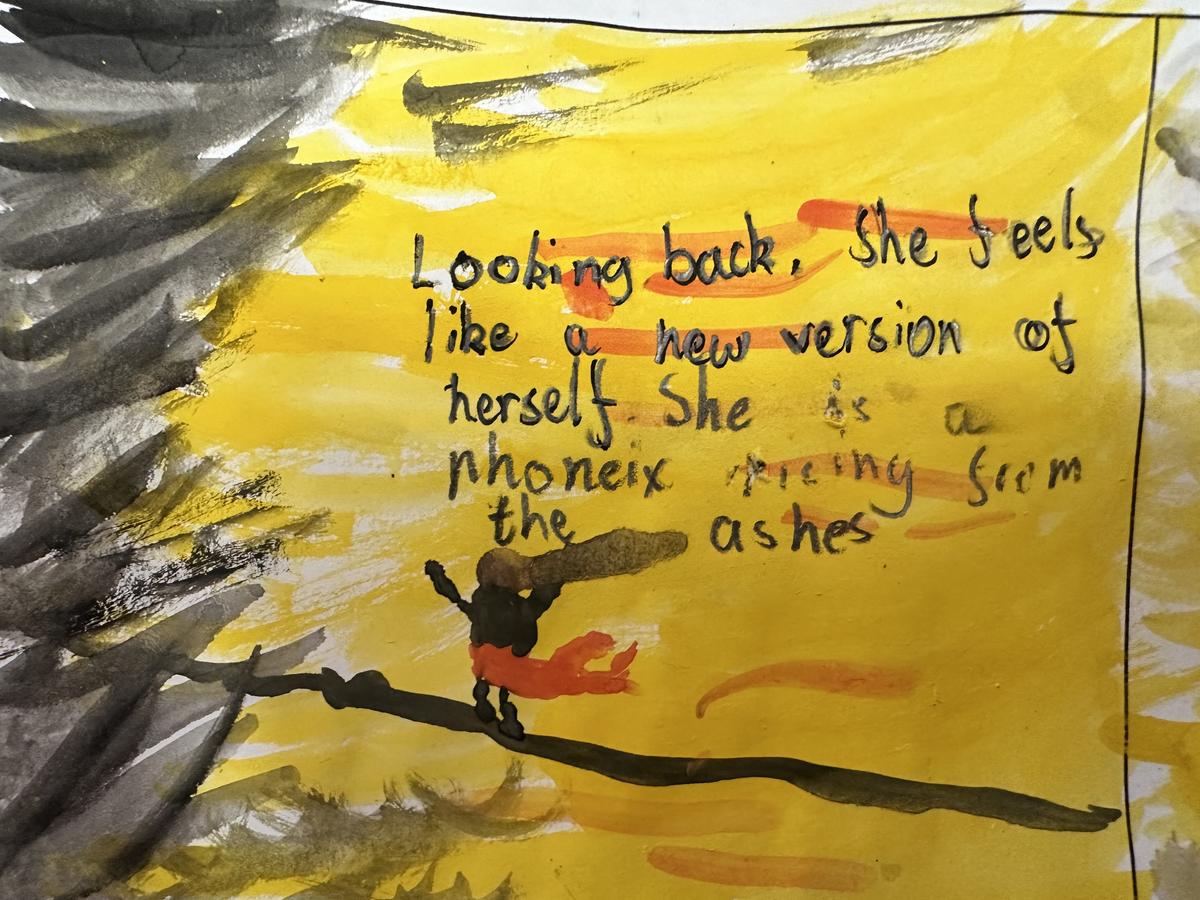 Looking back, She feels
like a new version of
herself. She is a
phoneix ricing from
the ashes